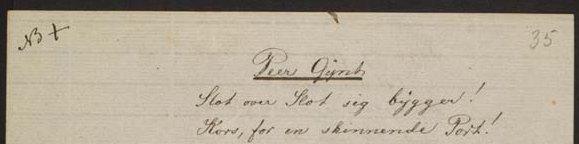 NB +
35
Peer Gynt
Slot over Slot sig bygger!
Kors, for en skinnende Port!